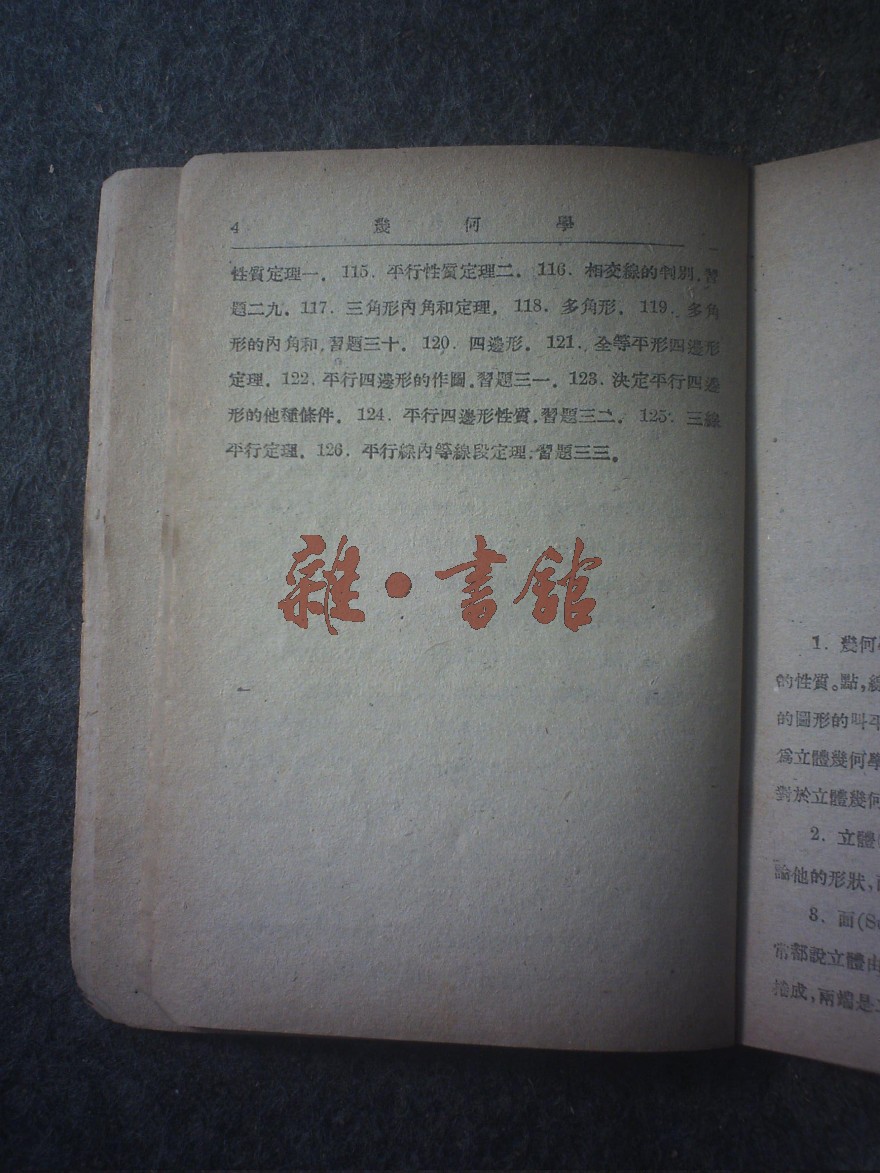 4 幾何學
性質定理一. 115. 平行性質定理二. 116. 相交線的判別. 習
題二九. 117. 三角形內角和定理. 118. 多角形. 119. 多角
形的內角和. 習題三十. 120. 四邊形. 121. 全等平形四邊形
定理. 122. 平行四邊形的作圖. 習題三一. 123. 決定平行四邊
形的他種條件. 124. 平行四邊形性質. 習題三二. 125. 三線
平行定理. 126. 平行線內等線段定理. 習題三三。
雜·書館
1. 幾何
的性質。點,線
的圖形的叫平
爲立體幾何學
對於立體幾何
2. 立體
論他的形狀,
3. 面(Su
常都說立體由
捲成,兩端是